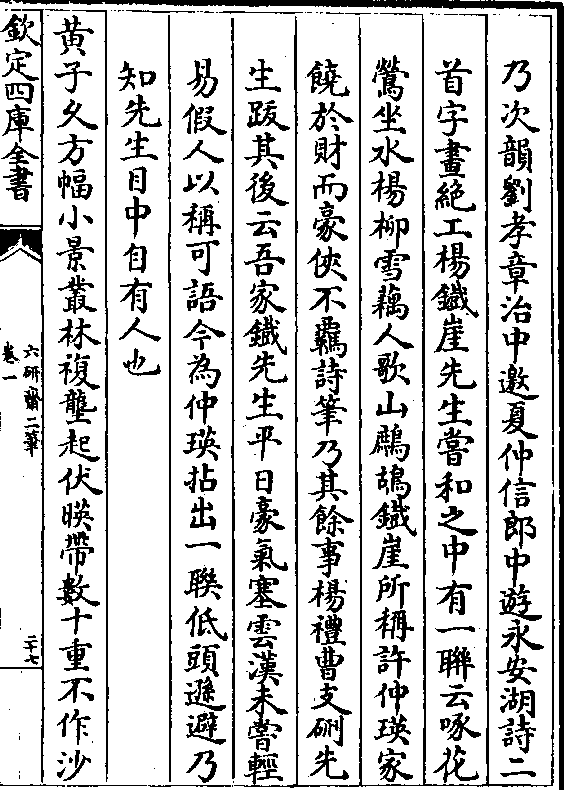 乃次韻劉孝章治中邀夏仲信郎中遊永安湖詩二
首字畫絶工楊鐵崖先生嘗和之中有一聯云啄花
鶯坐水楊柳雪藕人歌山鷓鴣鐵崖所稱許仲瑛家
饒於財而豪俠不羈詩筆乃其餘事楊禮曹支硎先
生跋其後云吾家鐵先生平日豪氣塞雲漢未嘗輕
易假人以稱可語今為仲瑛拈出一聯低頭遜避乃
知先生目中自有人也
黄子久方幅小景叢林複壟起伏映帶數十重不作沙
欽定四庫全書
六研齋二筆
卷一
二十七